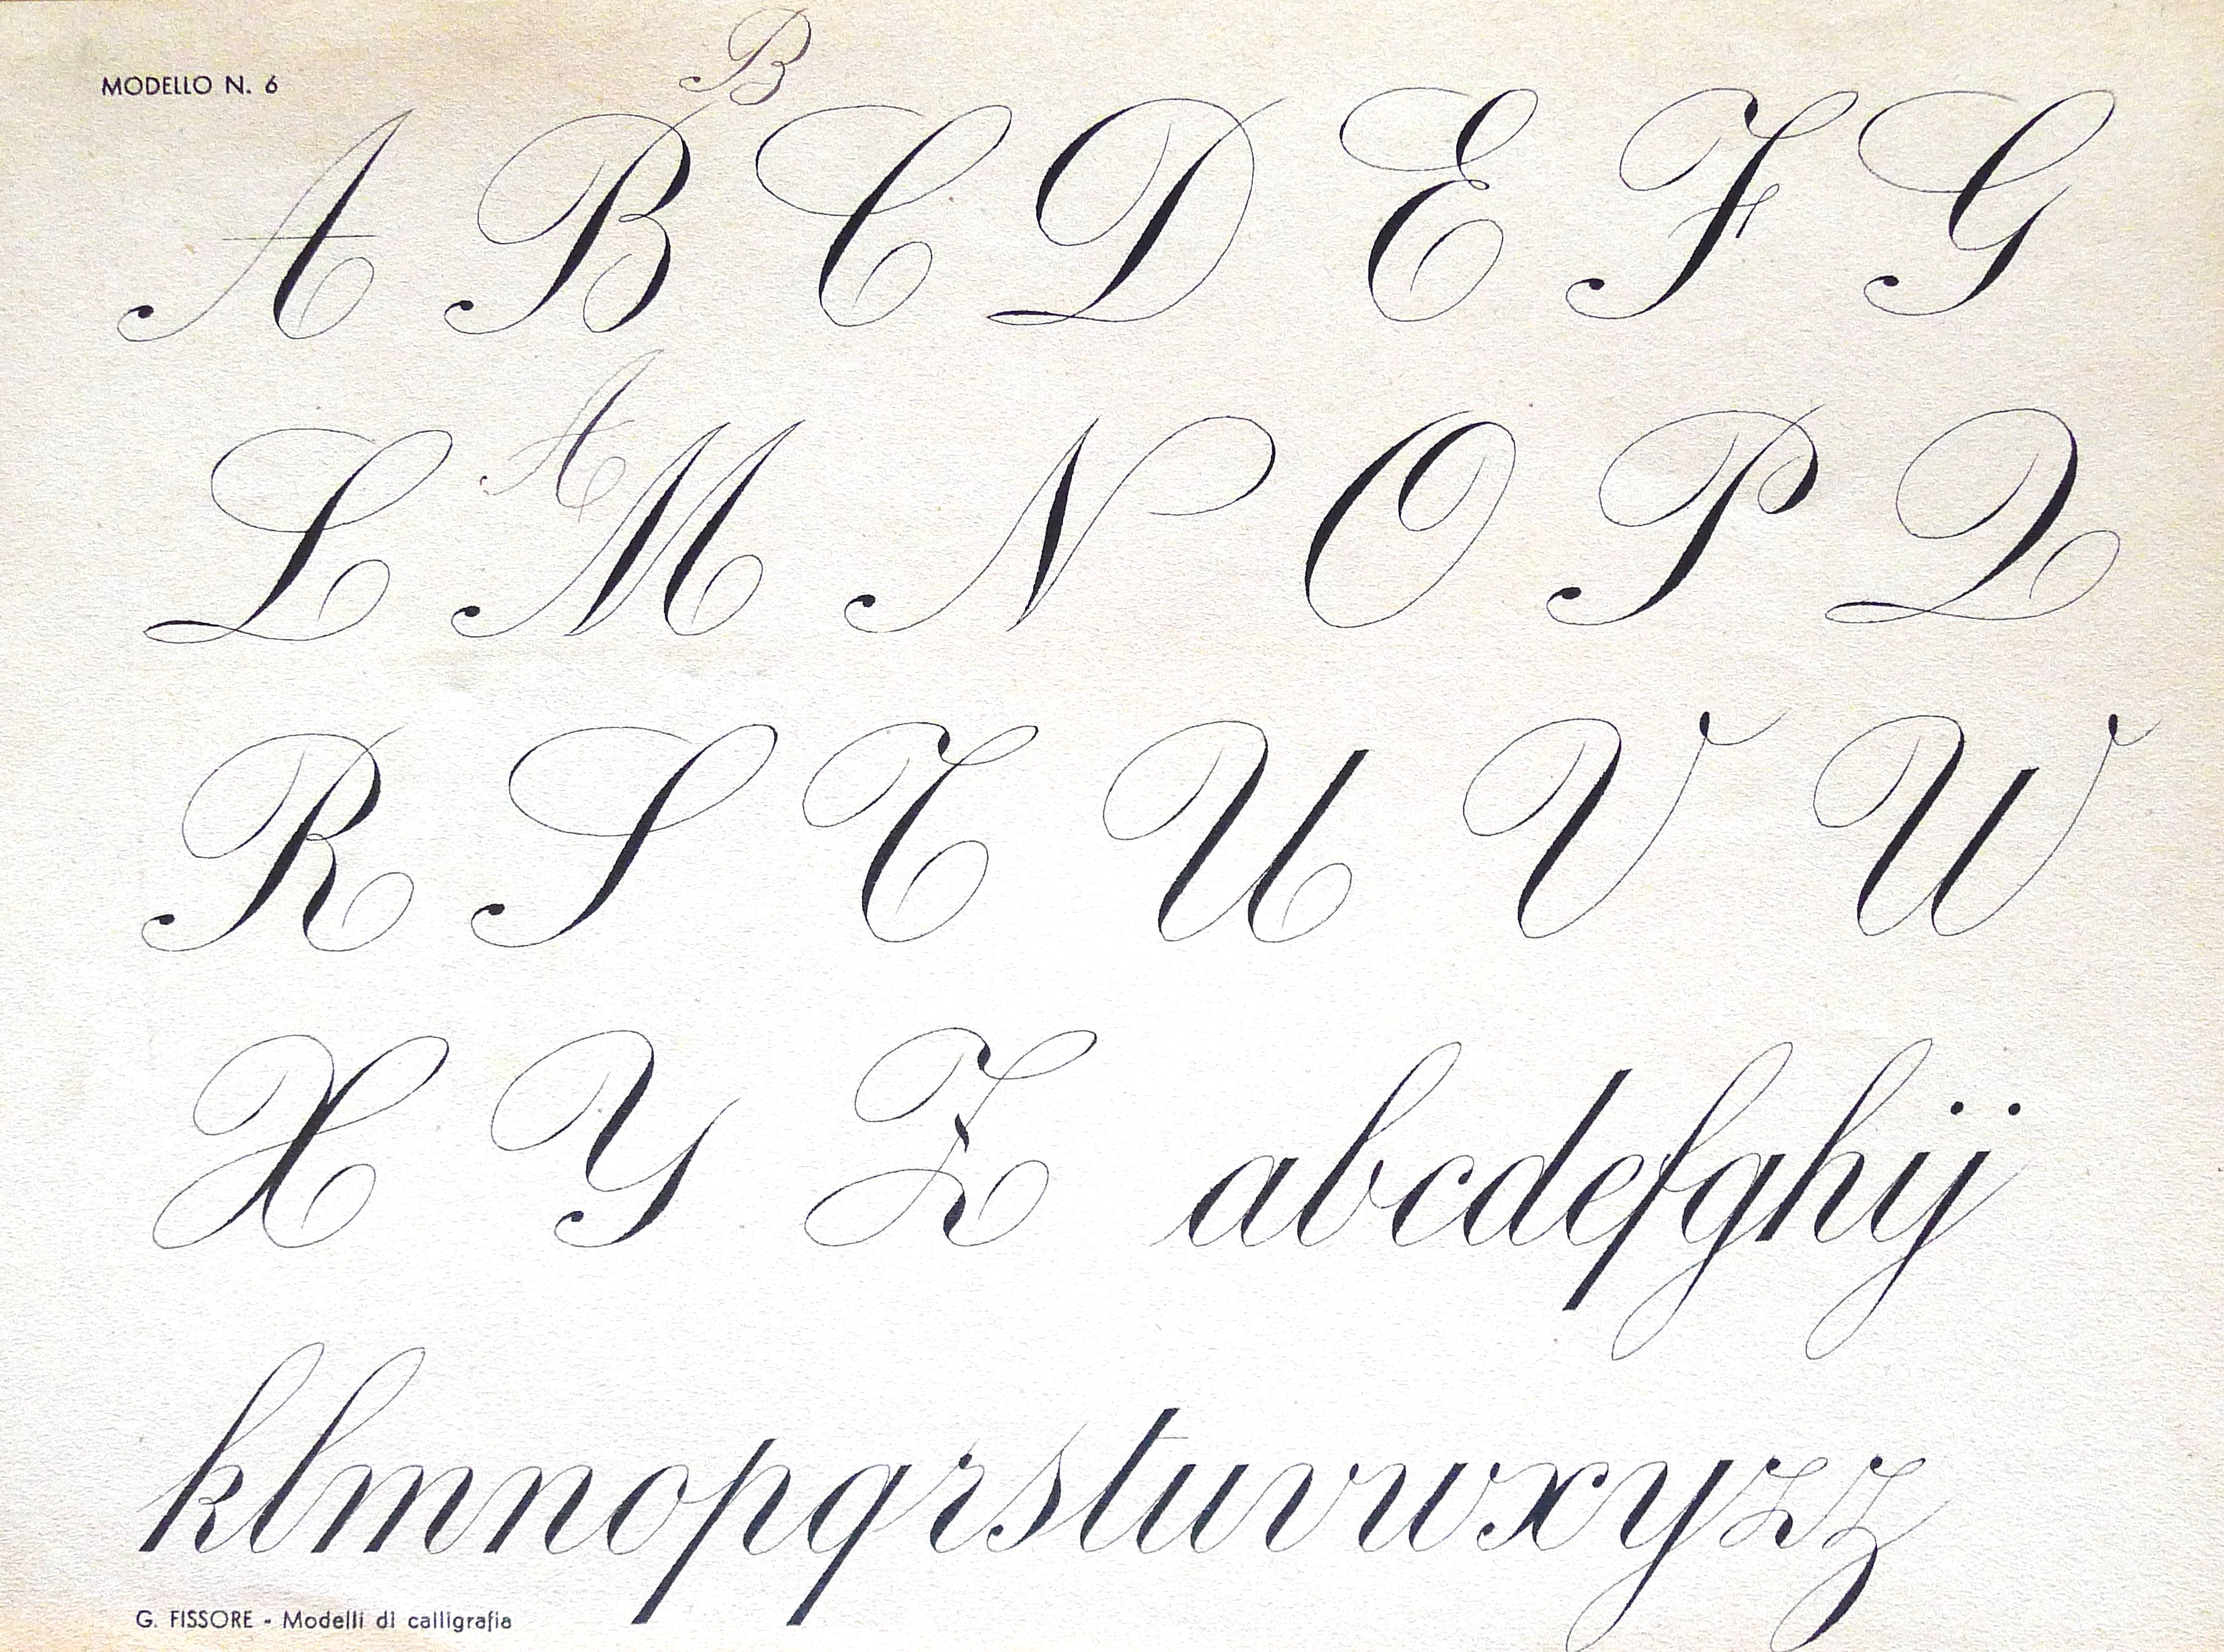 B
MODELLO N. 6
A B C D E F G
A
L M N O P Q
R S T U V W
X Y Z abcdefghij
klmnopqrstuvwxyzz
G. FISSORE - Modelli di calligrafia